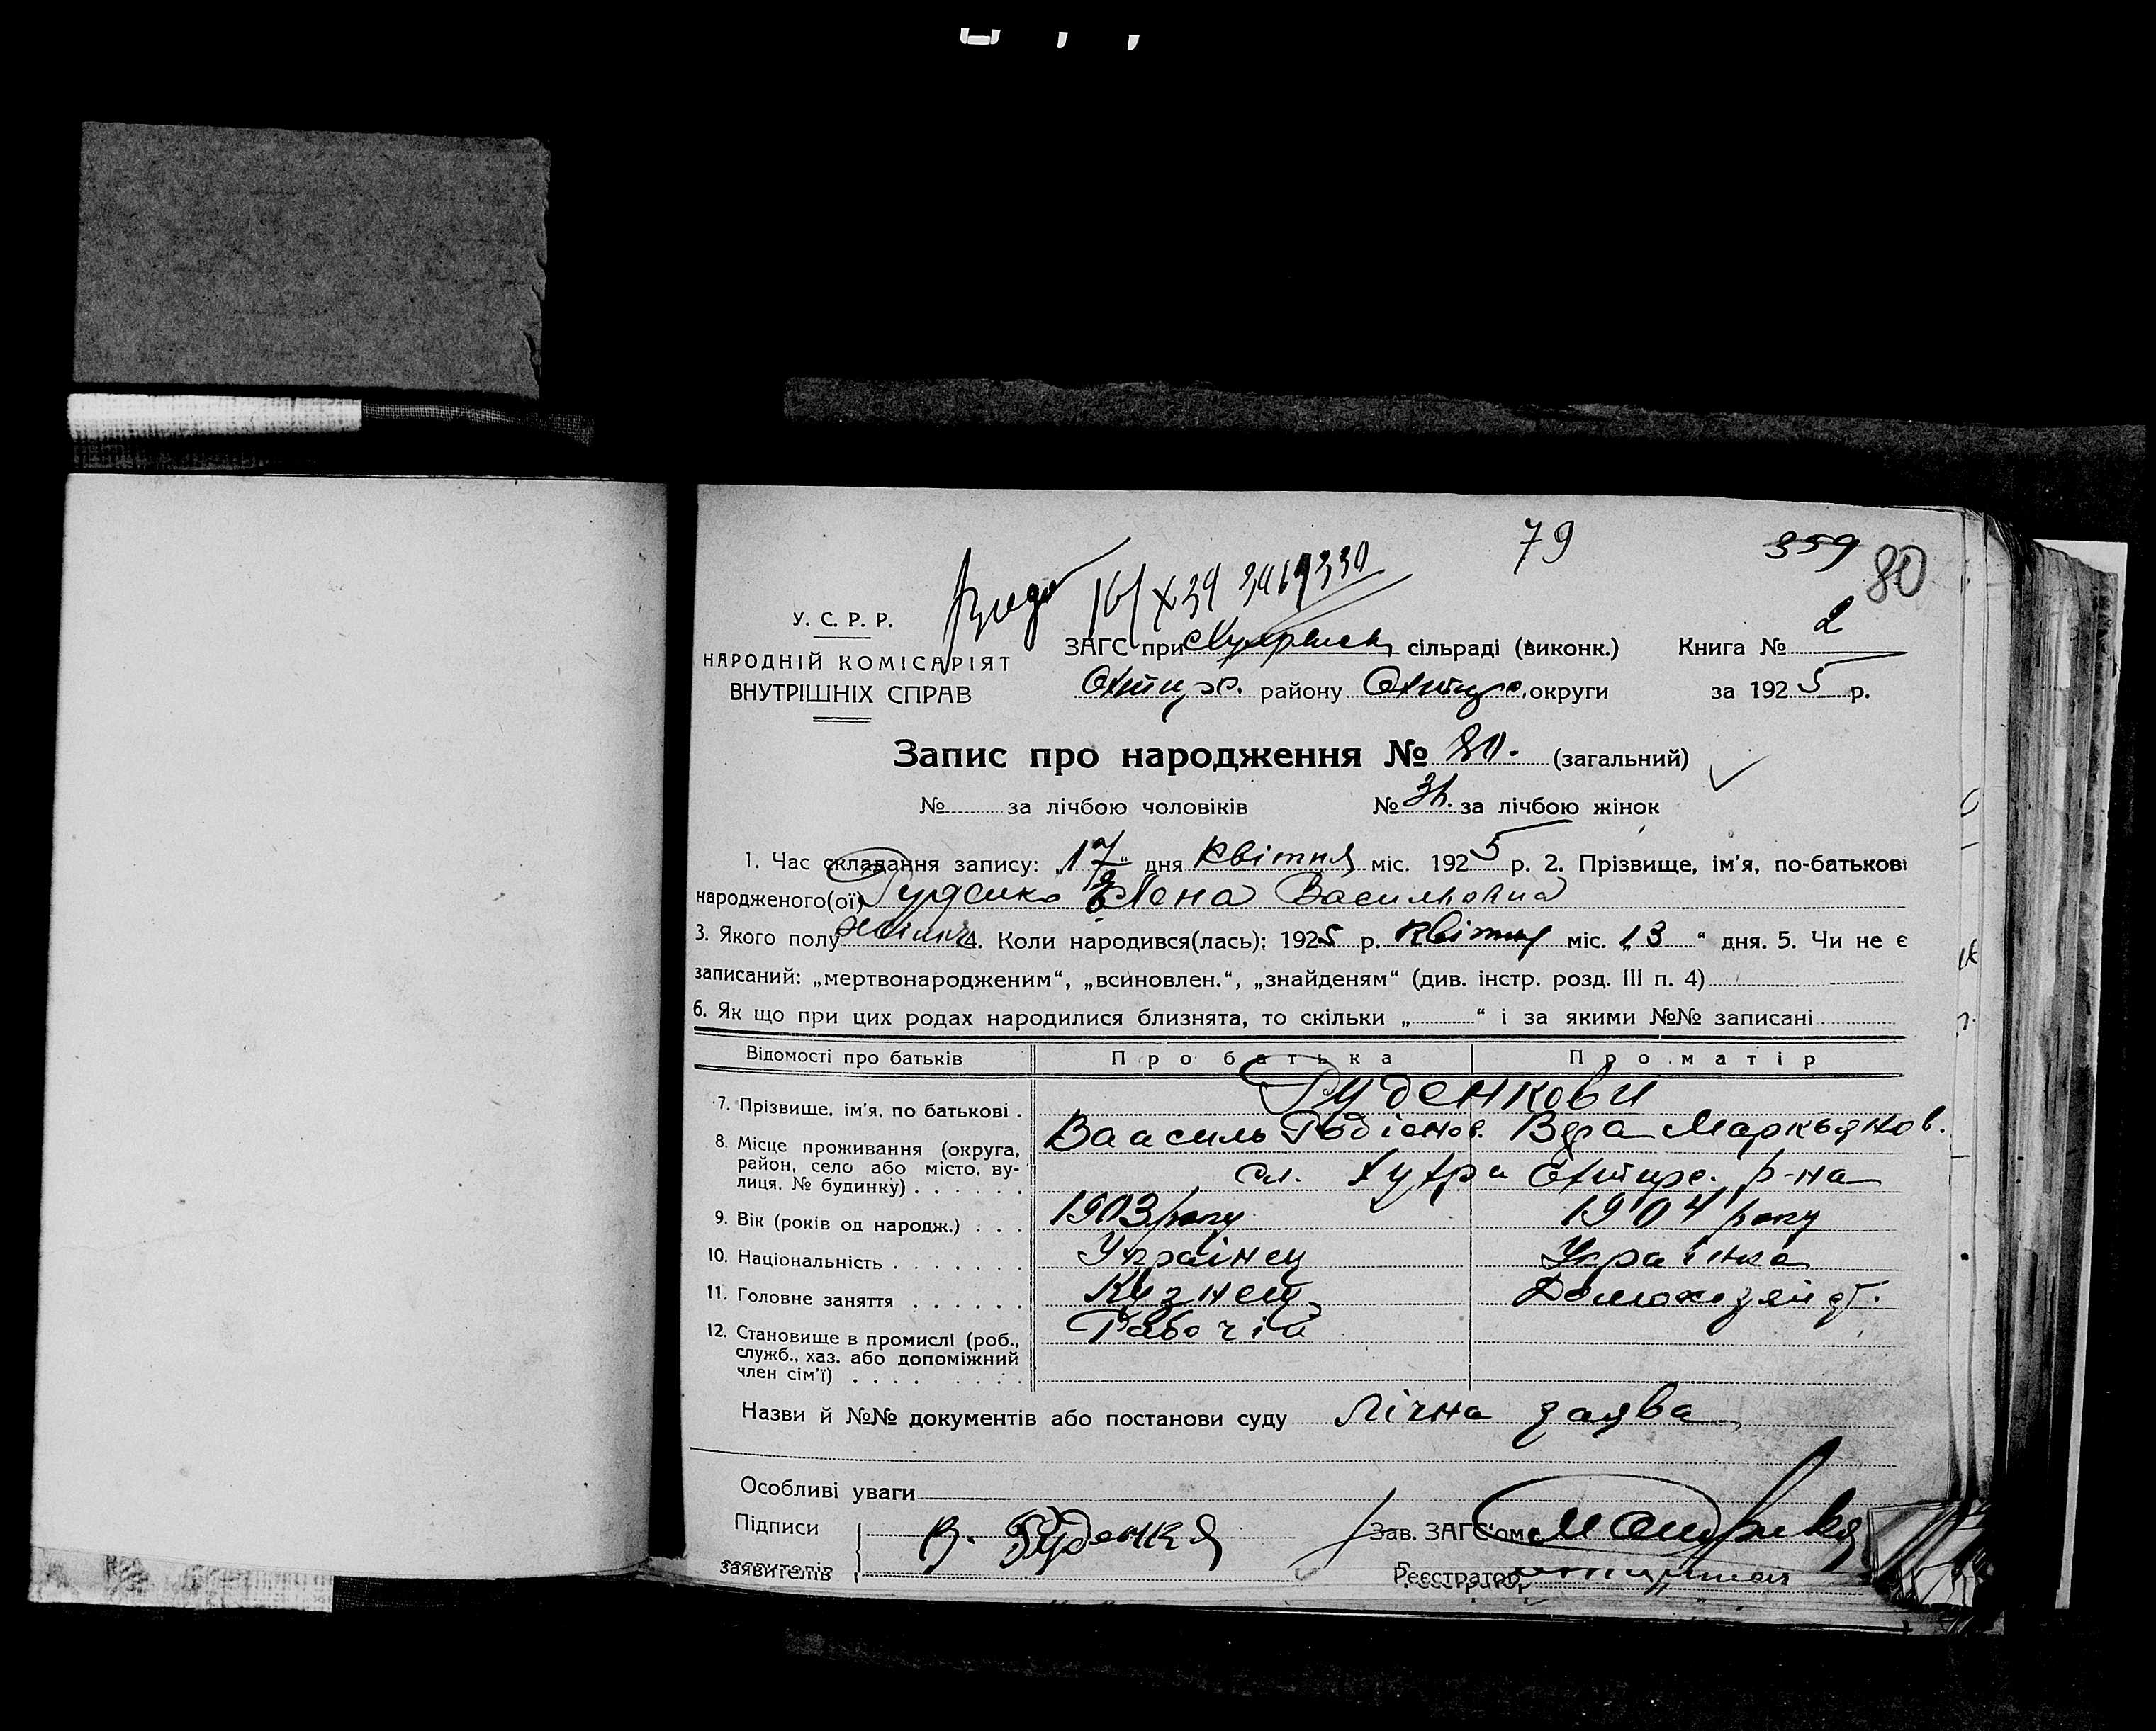 79 359 80
16/X39
У. С. Р. Р.
НАРОДНІЙ КОМІСАРІЯТ
ВНУТРІШНІХ СПРАВ
ЗАГС при сільраді (виконк.) Книга № 2
Охтирс. району Охтирс. округи за 1925 р.
Запис про народження № 80. (загальний)
№ за лічбою чоловіків № за лічбою жінок
1. Час складання запису: „17“ дня квітня міс. 1925 р. 2. Прізвище, ім'я, по-батькові
народженого(ої) Руденко Елена Васильовна
3. Якого полу жіноч. 4. Коли народився(лась): 1925 р. квітня міс. „13“ дня. 5. Чи не є
записаний: „мертвонародженим“, „всиновлен.“, „знайденям“ (див. інстр. розд. III п. 4)
6. Як що при цих родах народилися близнята, то скільки „ “ і за якими №№ записані
Відомості про батьків Про батька Про матір
7. Прізвище, ім'я, по батькові . Руденкови
Ваасиль Родіонов. Вера Маркьянов.
8. Місце проживання (округа, район, село або місто, ву-
лиця, № будинку) . . . . . . сл. Хухра Охтирс. р-на
9. Вік (років од народж.) . . . 1903 року 1904 року
10. Національність . . . . . . . Українец Українка
11. Головне заняття . . . . . . Кузнец Домохозяйст.
12. Становище в промислі (роб., Рабочій
служб., хаз. або допоміжний
член сім'ї) . . . . . . . .
Назви й №№ документів або постанови суду Лічна заява
Особливі уваги
Підписи В. Руденка Зав. ЗАГС'ом
заявителів Реєстратор